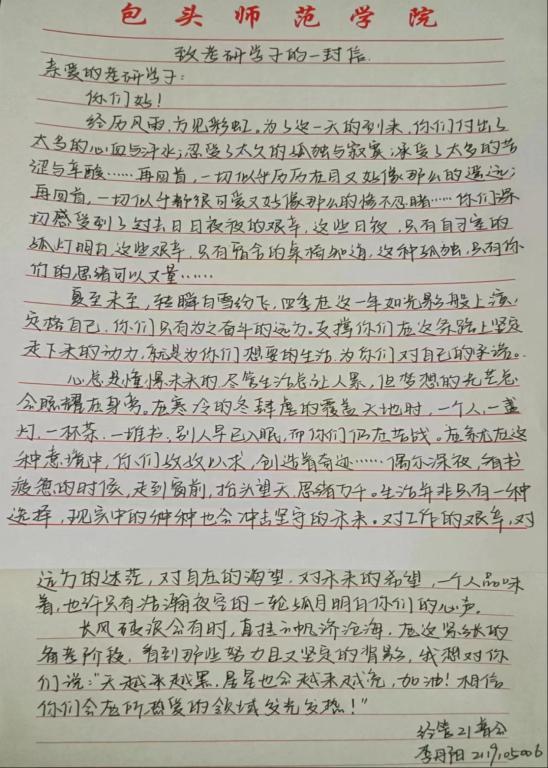 包头师范学院
致考研学子的一封信.
亲爱的考研学子:
你们好!
经历风雨,方见彩虹。为了这一天的到来,你们付出了
太多的心血与汗水;忍受了太久的孤独与寂寞;承受了太多的苦
涩与辛酸……再回首,一切似乎历历在目又好像那么的遥远;
再回首,一切似乎都很可爱又好像那么的惨不忍睹……你们深
切感受到了过去日日夜夜的艰辛,这些日夜,只有自习室的
孤灯明白,这些艰辛,只有宿舍的桌椅知道,这种孤独,只有你
们的思绪可以丈量……
夏至未至,转瞬白雪纷飞,四季在这一年如光影般上演,
定格自己,你们只有为之奋斗的远方。支撑你们在这条路上坚定
走下来的动力,就是为你们想要的生活,为你们对自己的承诺。
心总是憧憬未来的,尽管生活总让人累,但梦想的光芒总
会照耀在身旁。在寒冷的冬肆虐的覆盖天地时,一个人,一盏
灯,一杯茶,一堆书,别人早已入眠,而你们仍在苦战。在
种意境中,你们孜孜以求,创造着奇迹……偶尔深夜,看书
疲惫的时候,走到窗前,抬头望天,思绪万千。生活并非只有一种
选择,现实中的种种也会冲击坚守的未来。对工作的艰辛,对
远方的迷茫,对自在的渴望,对未来的希望,一个人品味
着,也许只有浩瀚夜空的一轮孤月明白你们的心声。
长风破浪会有时,直挂云帆济沧海,在这紧张的
备考阶段,看到那些努力且又坚定的背影,我想对你
们说:"天越来越黑,星星也会越来越亮,加油!相信
你们会在所热爱的领域发光发热!"
经管21普会
李丹阳 2119105006